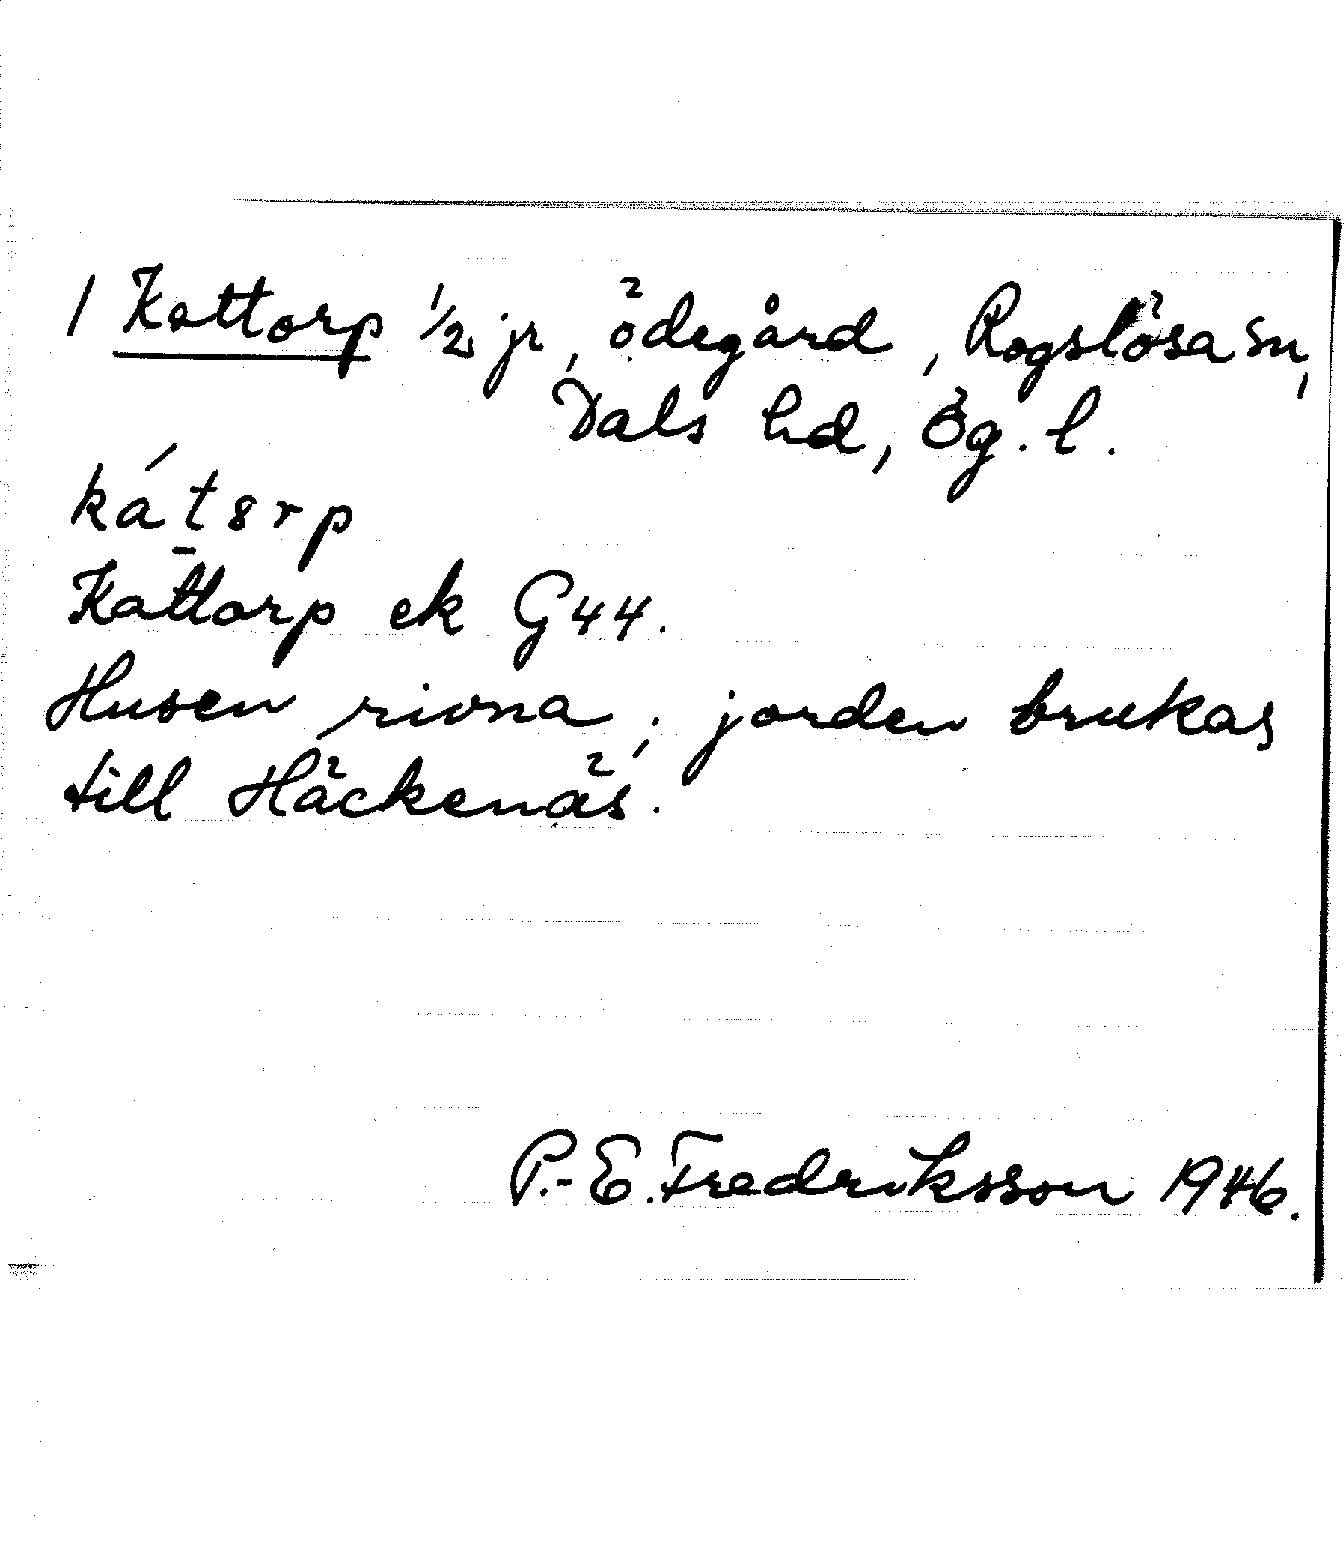 1 Kattorp 1/2 jr, ödegård, Rogslösa sn,
Dals hd, Ög. l.
kát8rp
Kattorp ek G44.
Husen rivna; jorden brukas
till Häckenäs.
P.-E. Fredriksson 1946.